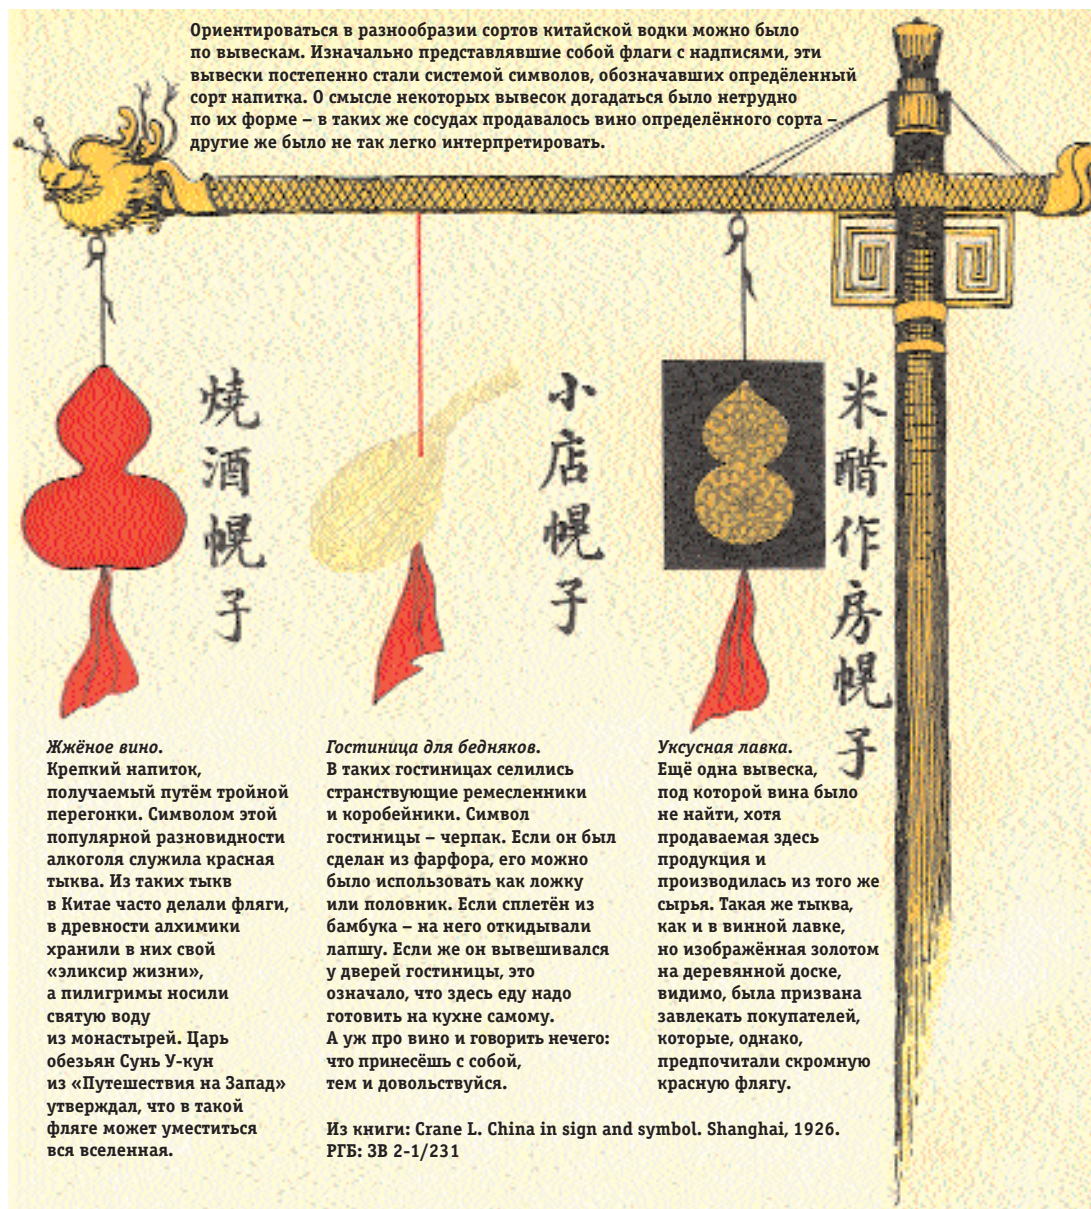 Ориентироваться в разнообразии сортов китайской водки можно было
по вывескам. Изначально представлявшие собой флаги с надписями, эти
вывески постепенно стали системой символов, обозначавших опредёленный
сорт напитка. О смысле некоторых вывесок догадаться было нетрудно
по их форме – в таких же сосудах продавалось вино определённого сорта –
другие же было не так легко интерпретировать.
燒酒幌子
小店幌子
米醋作房幌子
Жжёное вино.
Крепкий напиток,
получаемый путём тройной
перегонки. Символом этой
популярной разновидности
алкоголя служила красная
тыква. Из таких тыкв
в Китае часто делали фляги,
в древности алхимики
хранили в них свой
«эликсир жизни»,
а пилигримы носили
святую воду
из монастырей. Царь
обезьян Сунь У-кун
из «Путешествия на Запад»
утверждал, что в такой
фляге может уместиться
вся вселенная.
Гостиница для бедняков.
В таких гостиницах селились
странствующие ремесленники
и коробейники. Символ
гостиницы – черпак. Если он был
сделан из фарфора, его можно
было использовать как ложку
или половник. Если сплетён из
бамбука – на него откидывали
лапшу. Если же он вывешивался
у дверей гостиницы, это
означало, что здесь еду надо
готовить на кухне самому.
А уж про вино и говорить нечего:
что принесёшь с собой,
тем и довольствуйся.
Уксусная лавка.
Ещё одна вывеска,
под которой вина было
не найти, хотя
продаваемая здесь
продукция и
производилась из того же
сырья. Такая же тыква,
как и в винной лавке,
но изображённая золотом
на деревянной доске,
видимо, была призвана
завлекать покупателей,
которые, однако,
предпочитали скромную
красную флягу.
Из книги: Crane L. China in sign and symbol. Shanghai, 1926.
РГБ: ЗВ 2-1/231